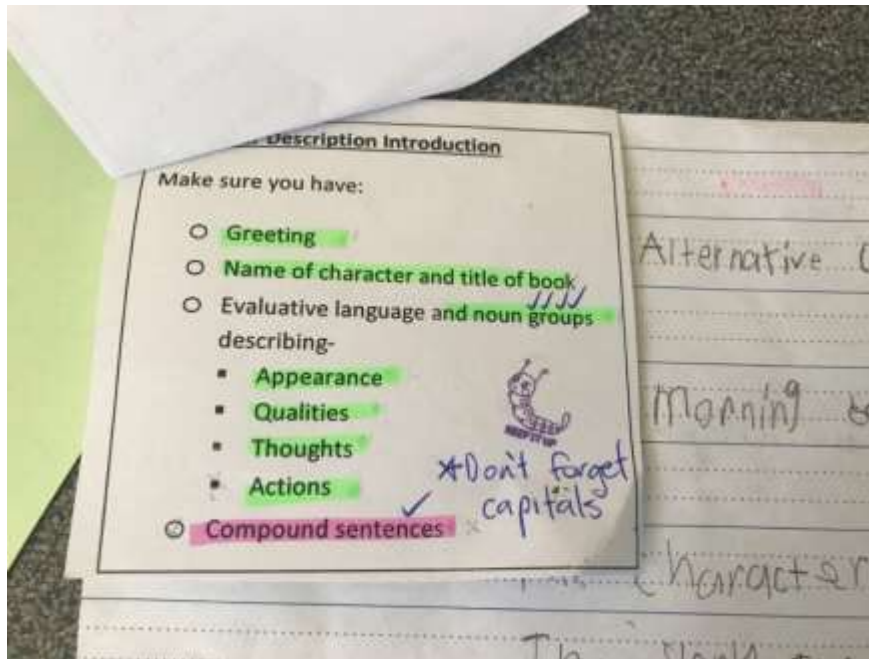 Description Introduction
Make sure you have:
Greeting
Name of character and title of book
Evaluative language and noun groups
describing-
Appearance
Qualities
Thoughts
Actions
Compound sentences
KEEP IT UP
*Don't forget
capitals
Alternative
Morning
Character